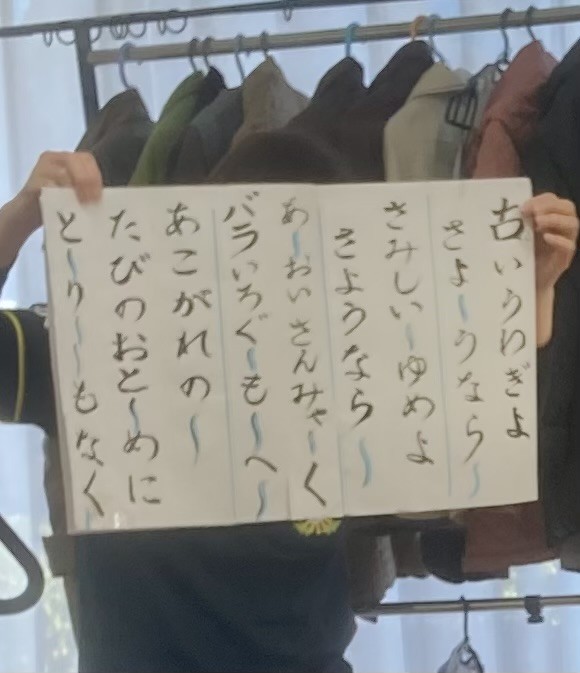 古いうわぎよ
さよ〜うなら〜
さみしい〜ゆめよ
さようなら〜
あ〜おいさんみゃ〜く
バラいろぐ〜も〜へ〜
あこがれの〜
たびのおと〜めに
と〜り〜〜もなく〜